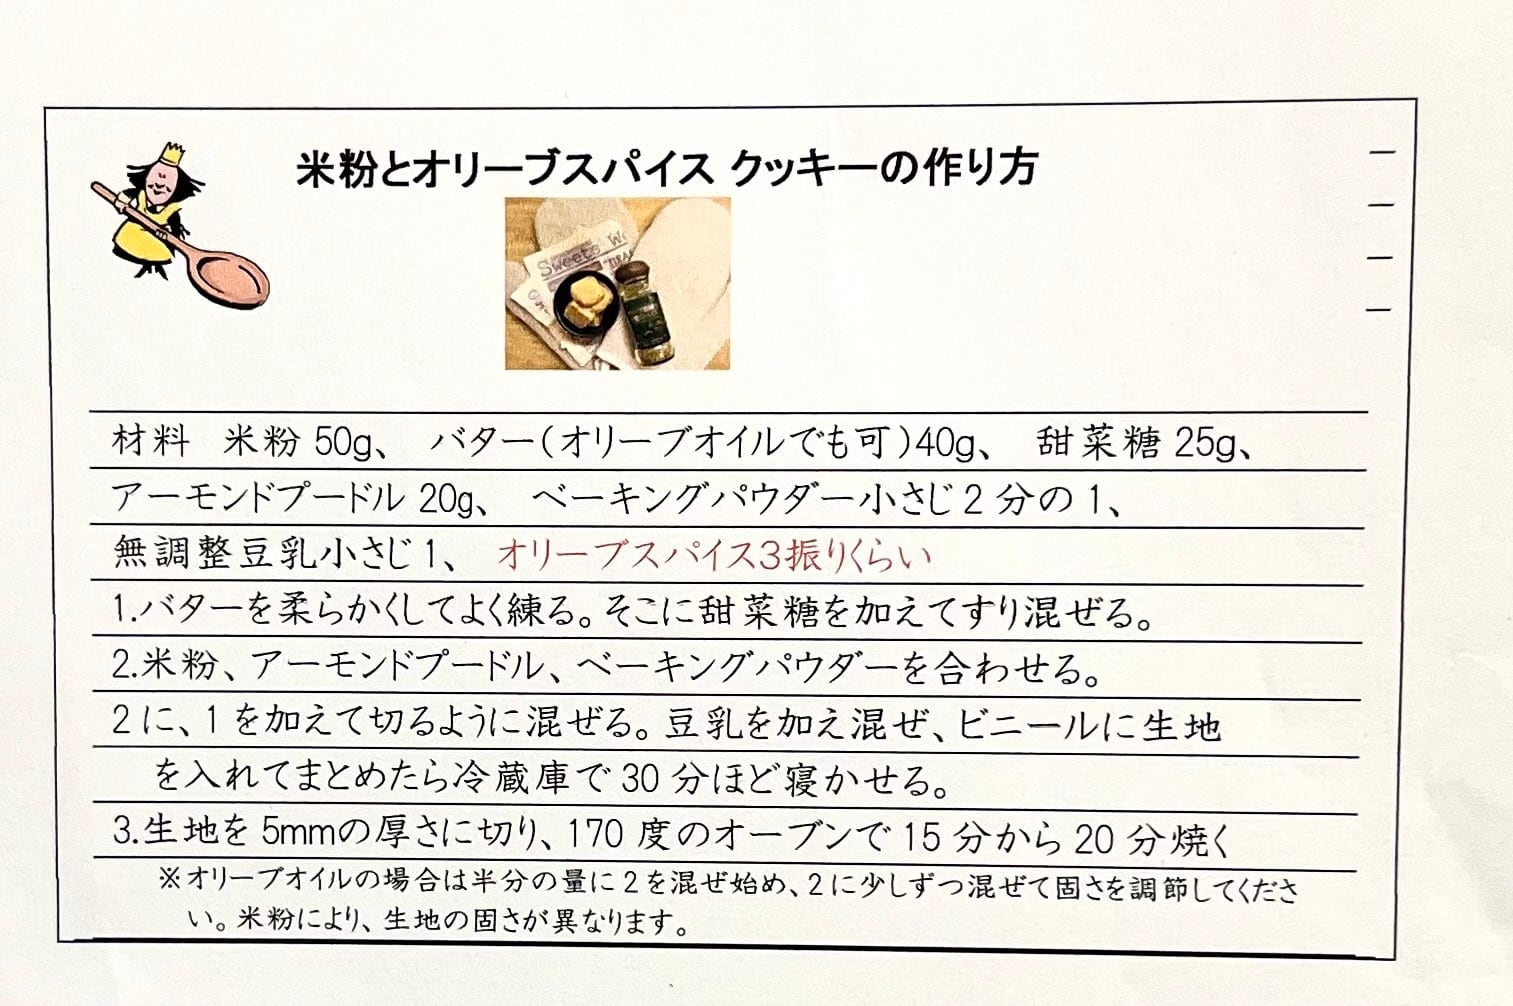 米粉とオリーブスパイス クッキーの作り方
Sweets W
材料 米粉 50g、 バター(オリーブオイルでも可)40g、 甜菜糖 25g、
アーモンドプードル 20g、 ベーキングパウダー小さじ2分の1、
無調整豆乳小さじ1、 オリーブスパイス3振りくらい
1.バターを柔らかくしてよく練る。そこに甜菜糖を加えてすり混ぜる。
2.米粉、アーモンドプードル、ベーキングパウダーを合わせる。
2に、1を加えて切るように混ぜる。豆乳を加え混ぜ、ビニールに生地
を入れてまとめたら冷蔵庫で30分ほど寝かせる。
3.生地を5mmの厚さに切り、170度のオーブンで15分から20分焼く
※オリーブオイルの場合は半分の量に2を混ぜ始め、2に少しずつ混ぜて固さを調節してくださ
い。米粉により、生地の固さが異なります。